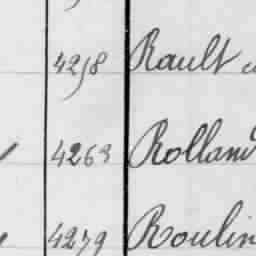 4258 Rault
4263 Rolland
4279 Roulin